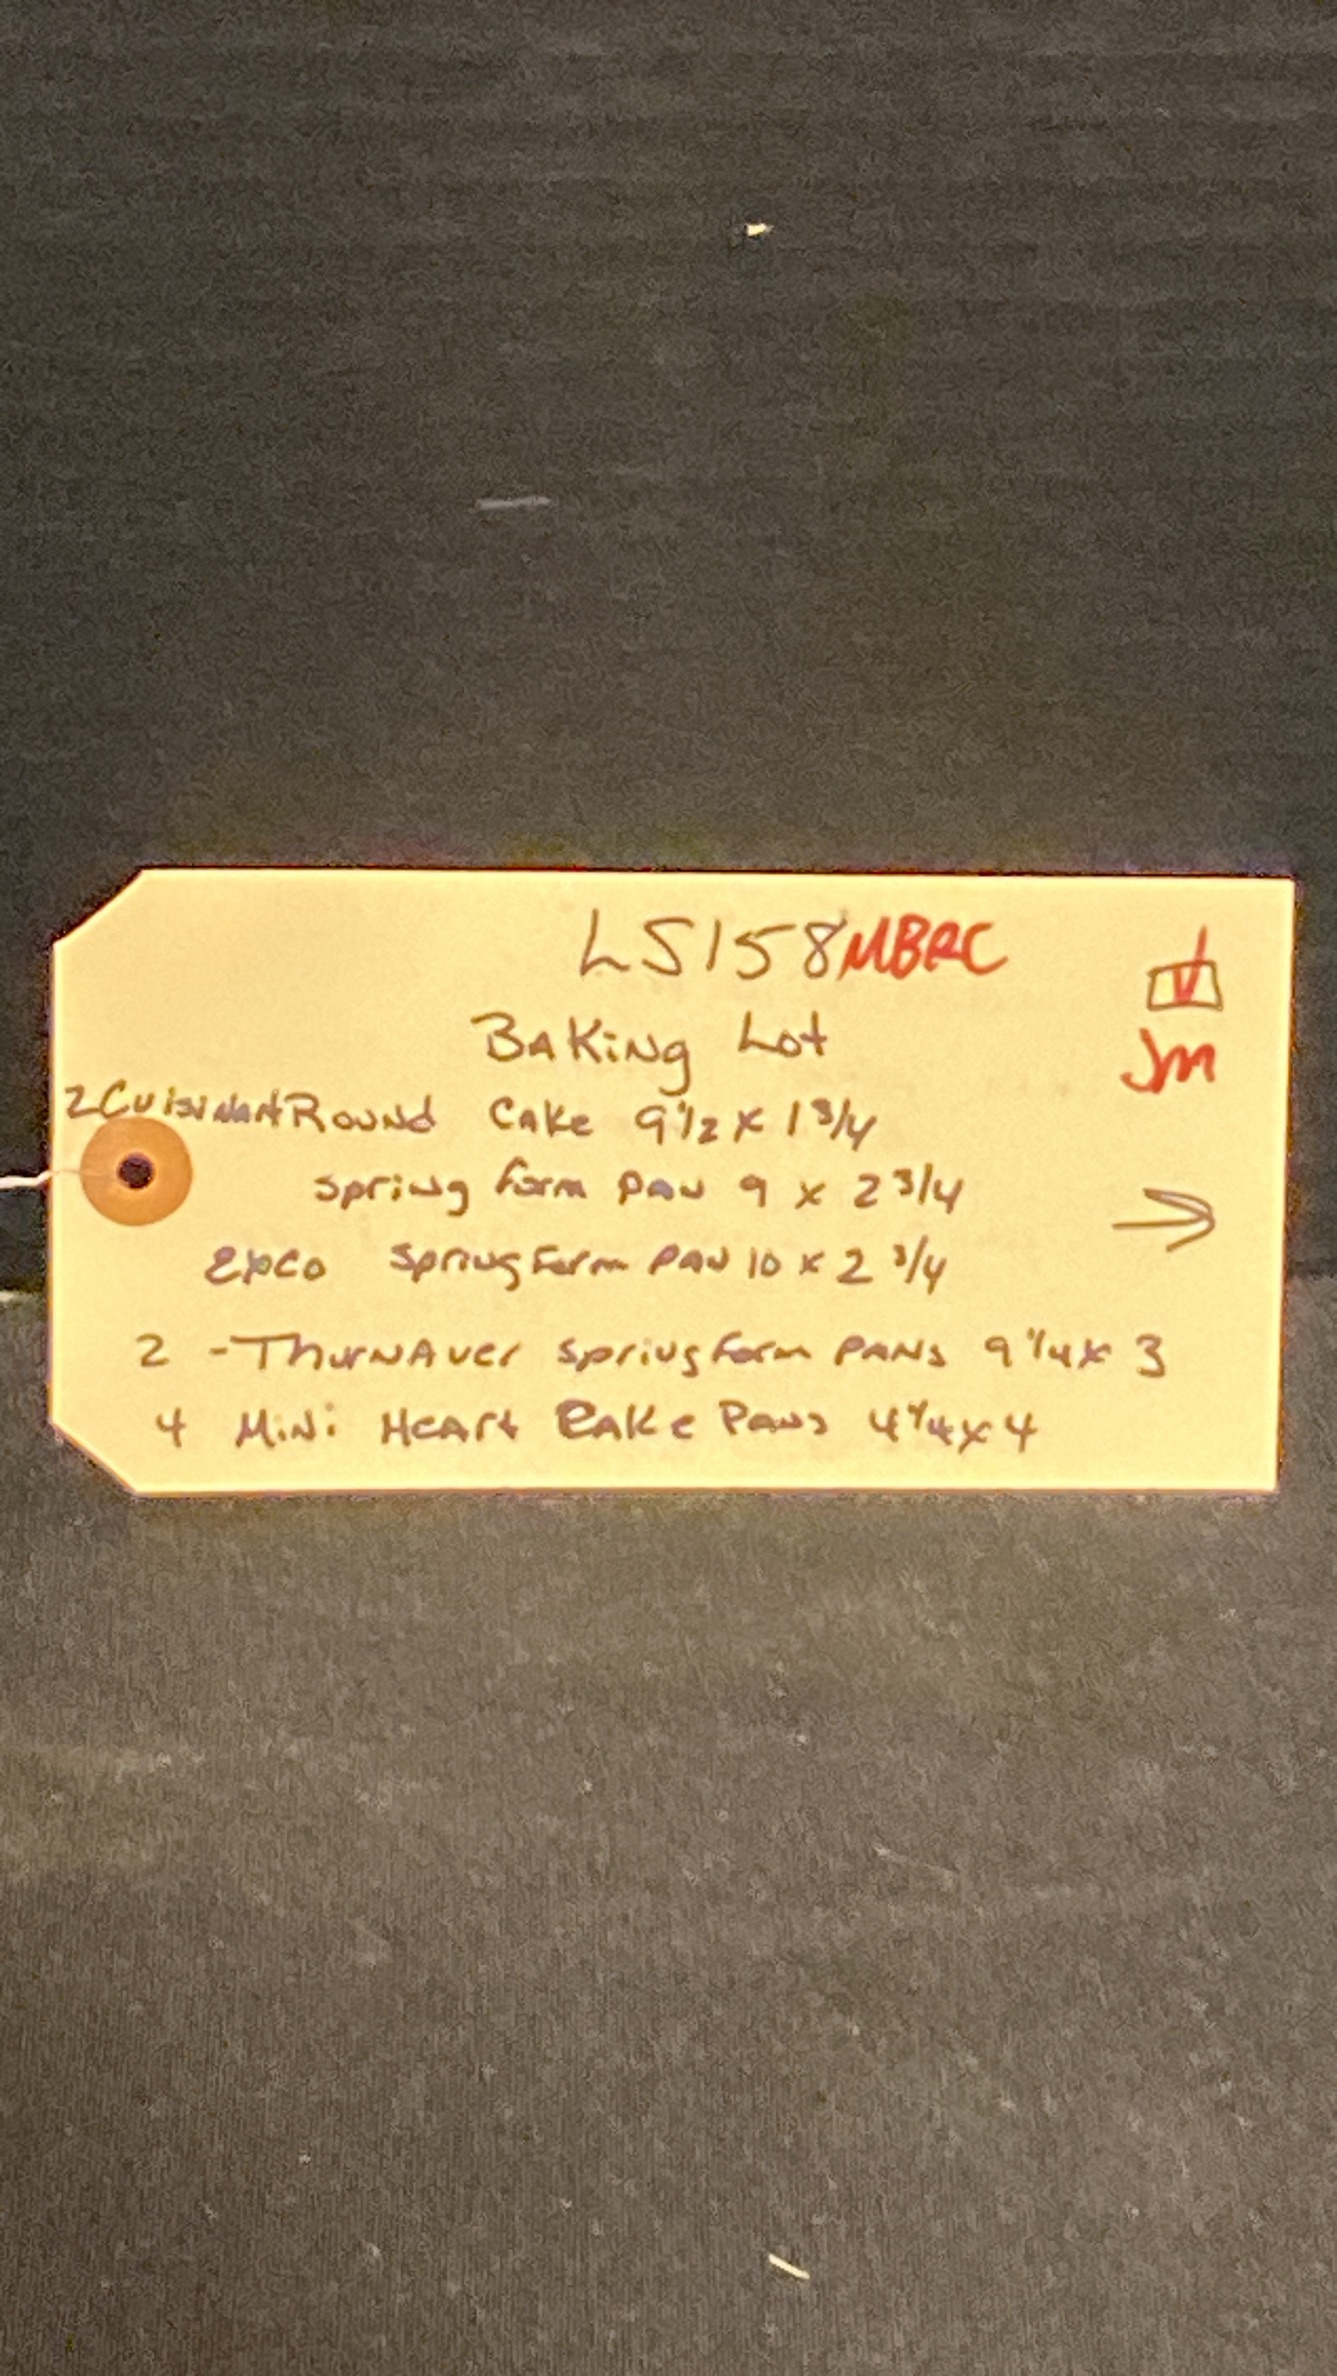 LS158 MBRC
Jm
Baking Lot
2 Cuisinart Round Cake 9 1/2 x 1 3/4
spring form pan 9 x 2 3/4
Expco springform pan 10 x 2 3/4
2 - Thurnauer springform pans 9 1/4 x 3
4 Mini Heart Cake Pans 4 1/4 x 4